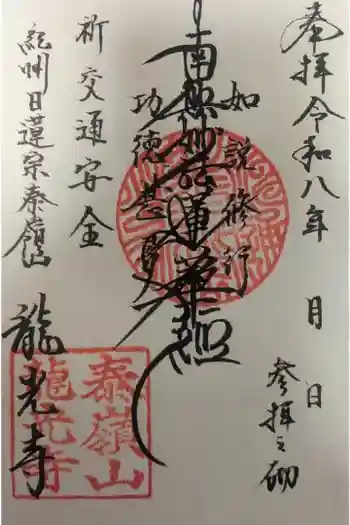 奉拝 令和八年 月 日
参拝之砌
如説修行
南無妙法蓮華経
功徳甚多
祈交通安全
紀州日蓮宗泰嶺山
龍光寺
泰嶺山
龍光寺